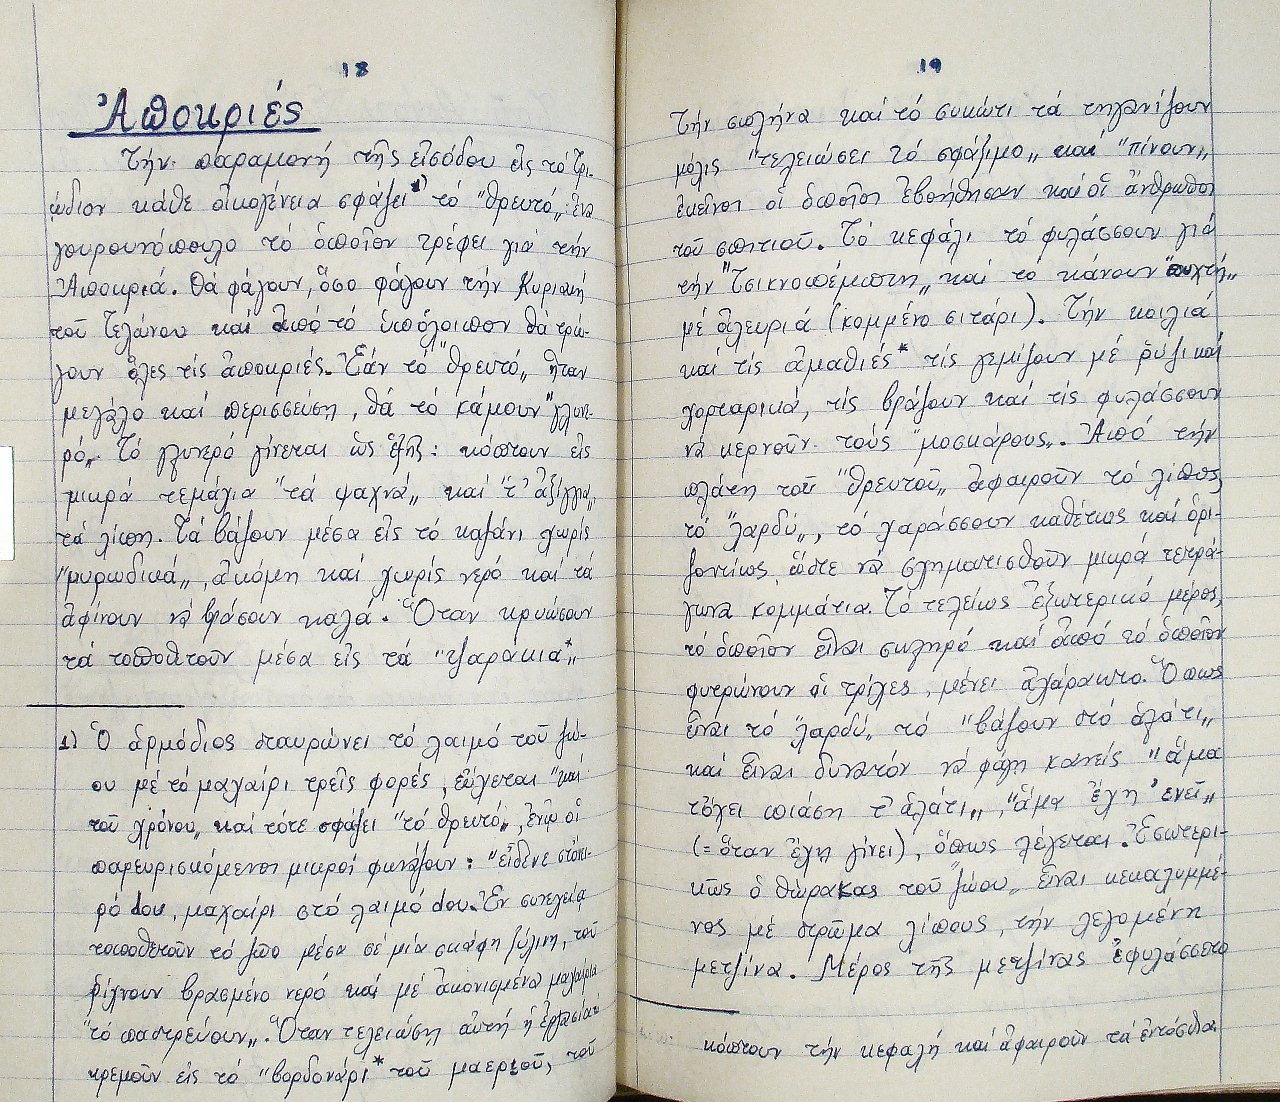 18
Ἀποκριές
Τήν παραμονή τῆς εἰσόδου εἰς τό Τρι-
ώδιον κάθε οἰκογένεια σφάζει 1) τό "θρευτό„ ἕνα
γουρουνόπουλο τό ὁποῖον τρέφει γιά τήν
Ἀποκριά. Θά φάγουν, ὅσο φάγουν τήν Κυριακή
τοῦ Τελώνου καί ἀπό τό ὑπόλοιπον θά τρώ-
γουν ὅλες τίς ἀποκριές. Ἐάν τό "θρευτό„ ἦταν
μεγάλο καί περισσεύση, θά τό κάμουν "γλυνε-
ρό„. Τό γλυνερό γίνεται ὡς ἑξῆς: κόπτουν εἰς
μικρά τεμάχια "τά ψαχνά„ καί "τ' ἀξίγγια„,
τά λίπη. Τά βάζουν μέσα εἰς τό καζάνι χωρίς
"μυρωδικά„, ἀκόμη καί χωρίς νερό καί τά
ἀφίνουν νά βράσουν καλά. Ὅταν κρυώσουν
τά τοποθετοῦν μέσα εἰς τά "τζαράκια*„
1) Ὁ ἁρμόδιος σταυρώνει τό λαιμό τοῦ ζώ-
ου μέ τό μαχαίρι τρεῖς φορές, εὔχεται "καί
τοῦ χρόνου„ καί τότε σφάζει "τό θρευτό„, ἐνῶ οἱ
παρευρισκόμενοι μικροί φωνάζουν: "εἶδενε στόκι-
ρό dου, μαχαίρι στό λαιμό dου. Ἐν συνεχείᾳ
τοποθετοῦν τό ζῶο μέσα σέ μία σκάφη ξύλινη, τοῦ
ρίχνουν βρασμένο νερό καί μέ ἀκονισμένα μαχαίρια
"τό παστρεύουν„. Ὅταν τελειώση αὐτή ἡ ἐργασία τό
κρεμοῦν εἰς τό "βορδονάρι* τοῦ μαεριοῦ, τοῦ
19
Τήν σπλήνα καί τό συκώτι τά τηγανίζουν
μόλις "τελειώσει τό σφάξιμο„ καί "πίνουν„
ἐκεῖνοι οἱ ὁποῖοι ἐβοήθησαν καί οἱ ἄνθρωποι
τοῦ σπιτιοῦ. Τό κεφάλι τό φυλάσσουν γιά
τήν "Τσικνοπέμπτη„ καί τό κάνουν "πυχτή„
μέ ἀλευριά (κομμένο σιτάρι). Τήν κοιλιά
καί τίς ἀμαθιές* τίς γεμίζουν μέ ρύζι καί
χορταρικά, τίς βράζουν καί τίς φυλάσσουν
νά κερνοῦν τούς "μοσκάρους„. Ἀπό τήν
πλάτη τοῦ "θρευτοῦ„ ἀφαιροῦν τό λίπος,
τό "λαρδύ„, τό χαράσσουν καθέτως καί ὁρι-
ζοντίως ὥστε νά σχηματισθοῦν μικρά τετρά-
γωνα κομμάτια. Τό τελείως ἐξωτερικό μέρος,
τό ὁποῖον εἶναι σκληρό καί ἀπό τό ὁποῖον
φυτρώνουν οἱ τρίχες, μένει ἀχάρακτο. Ὅπως
εἶναι τό "λαρδύ„ τό "βάζουν στό ἁλάτι„
καί εἶναι δυνατόν νά φάγη κανείς "ἅμα
τὄχει πιάση τ' ἁλάτι„, "ἅμα ἔχη 'ενεῖ„
(= ὅταν ἔχη γίνει), ὅπως λέγεται. Ἐσωτερι-
κῶς ὁ θώρακας τοῦ "ζώου„ εἶναι κεκαλυμμέ-
νος μέ στρῶμα λίπους, τήν λεγομένη
μετζίνα. Μέρος τῆς μετζίνας ἐφυλάσσετο
κόπτουν τήν κεφαλή καί ἀφαιροῦν τά ἐντόσθια.